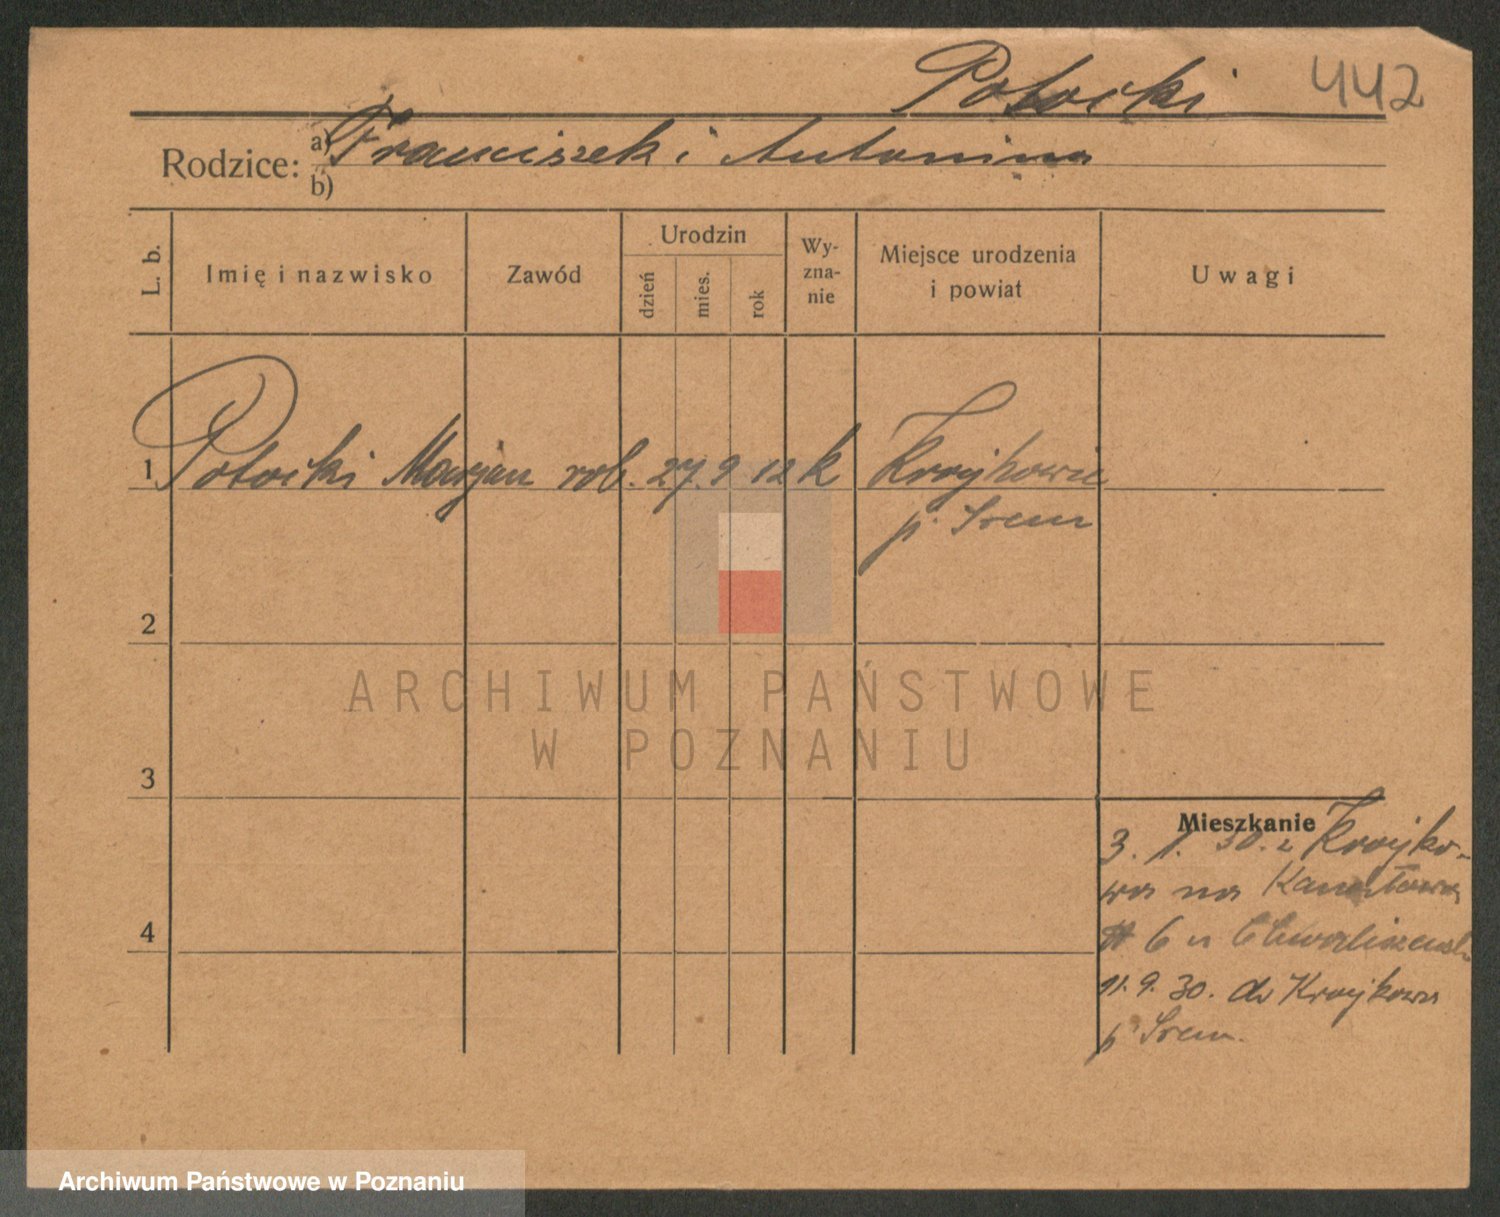 Potocki 442
Rodzice: a) Franciszek i Antonina
b)
L. b. Imię i nazwisko Zawód Urodzin dzień mies. rok Wy-zna-nie Miejsce urodzenia i powiat Uwagi
1 Potocki Marjan rob. 27. 9 12 k
p. Śrem
2
ARCHIWUM PAŃSTWOWE
W POZNANIU
3
Mieszkanie
3. 1. 30. z
na
4
6 u
11. 9. 30. do
p. Śrem.
Archiwum Państwowe w Poznaniu